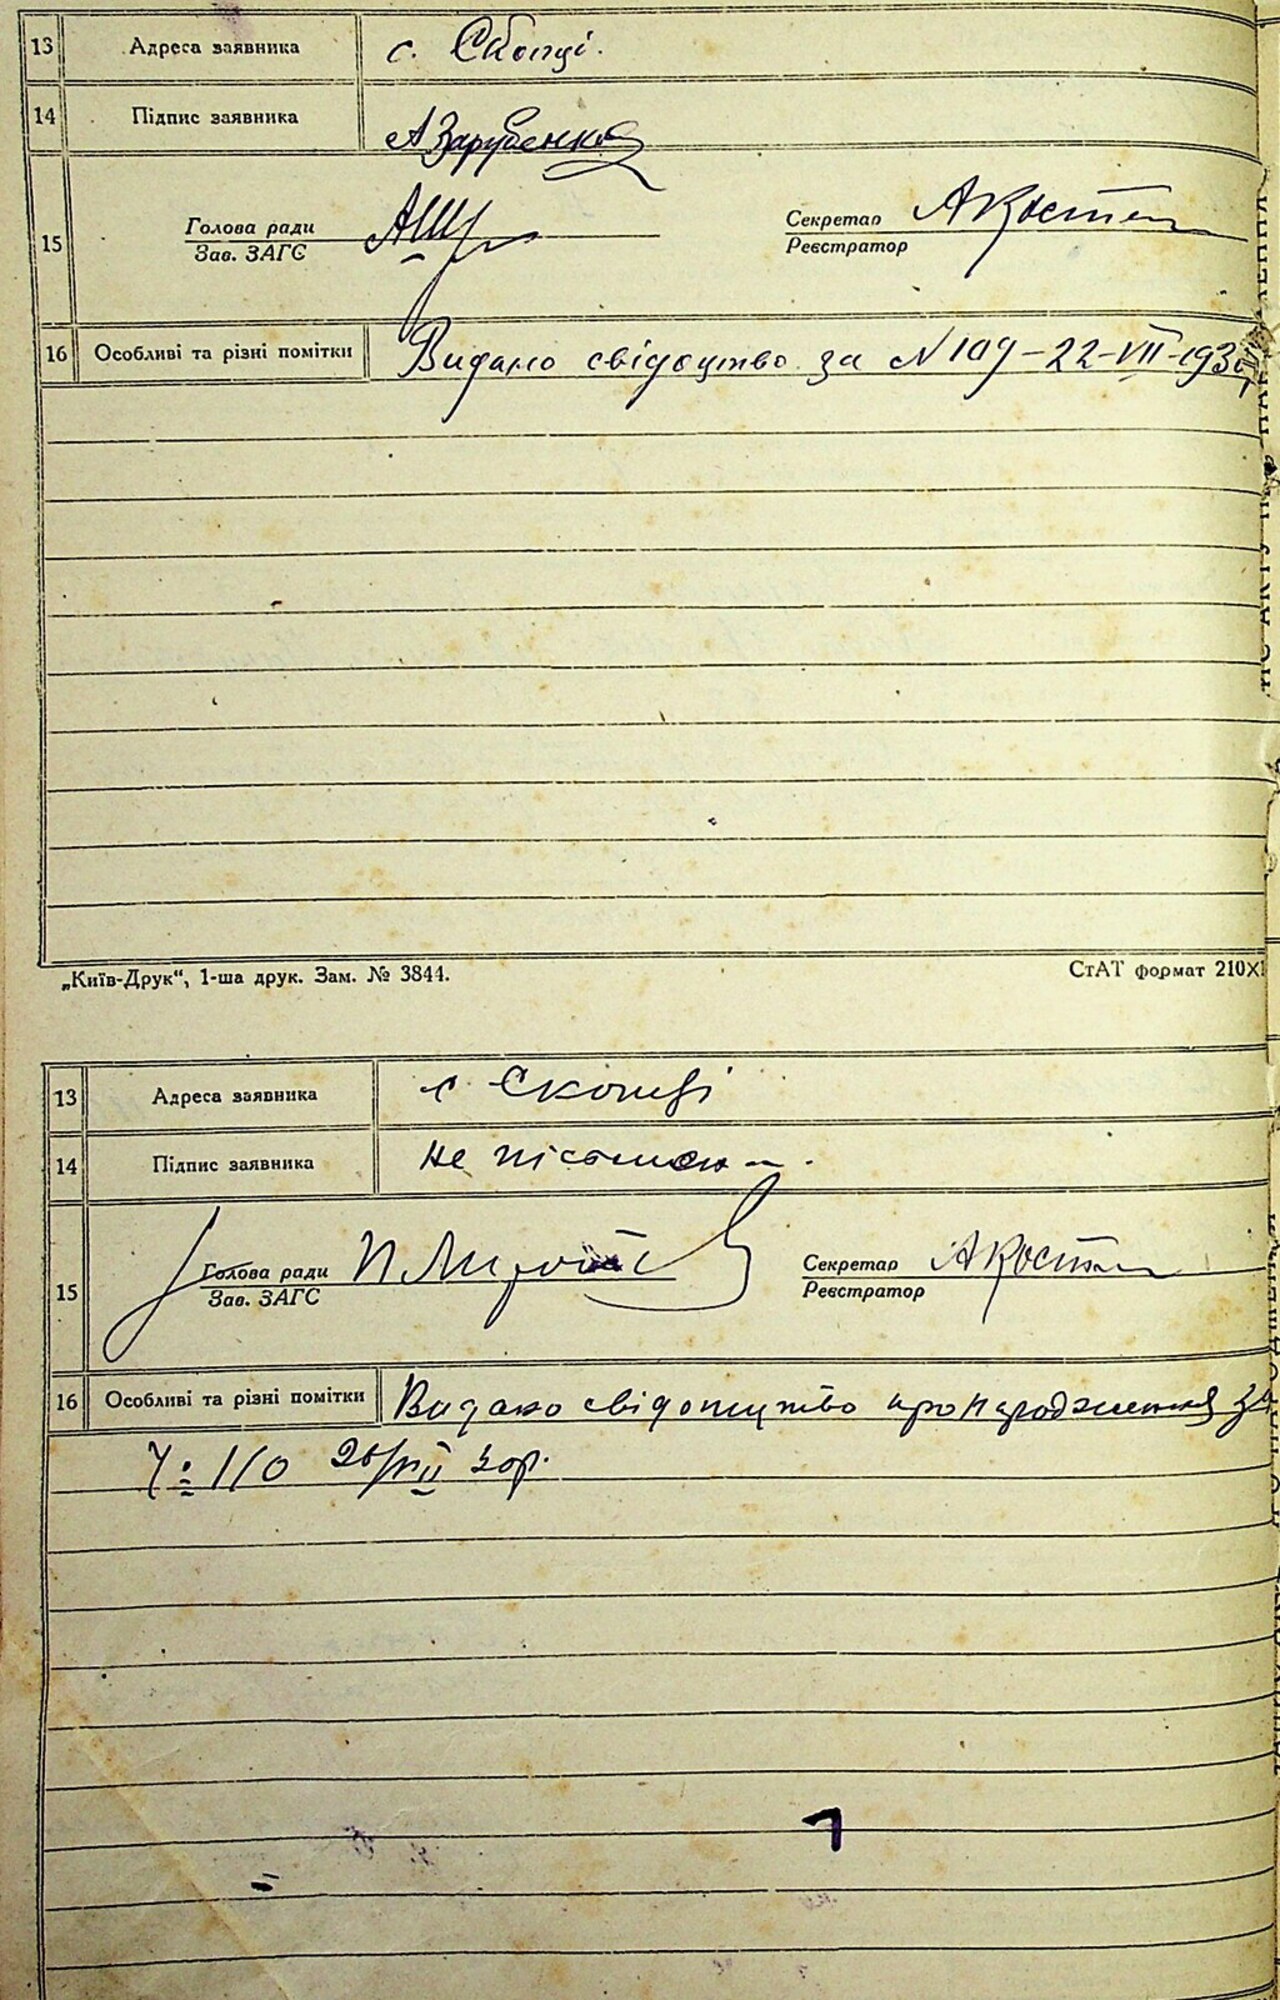 13 Адреса заявника с. Скопці.
14 Підпис заявника А Зарубенко
15 Голова ради Секретар А Кост
Зав. ЗАГС Реєстратор
16 Особливі та різні помітки Видано свідоцтво за N 109 – 22 – VII – 193
„Київ-Друк“, 1-ша друк. Зам. № 3844. СтАТ формат 210×1
13 Адреса заявника с Скопці
14 Підпис заявника не
15 Голова ради Секретар А Кост
Зав. ЗАГС Реєстратор
16 Особливі та різні помітки Видано свідоцтво про народження за
Ч: 110